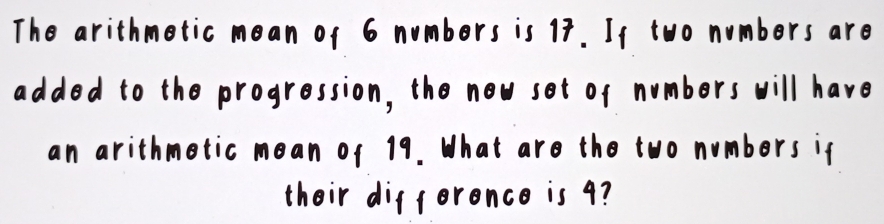 The arithmetic mean of 6 numbers is 17. If two numbers are
added to the progression, the new set of numbers will have
an arithmetic mean of 19. What are the two numbers if
their difference is 4?